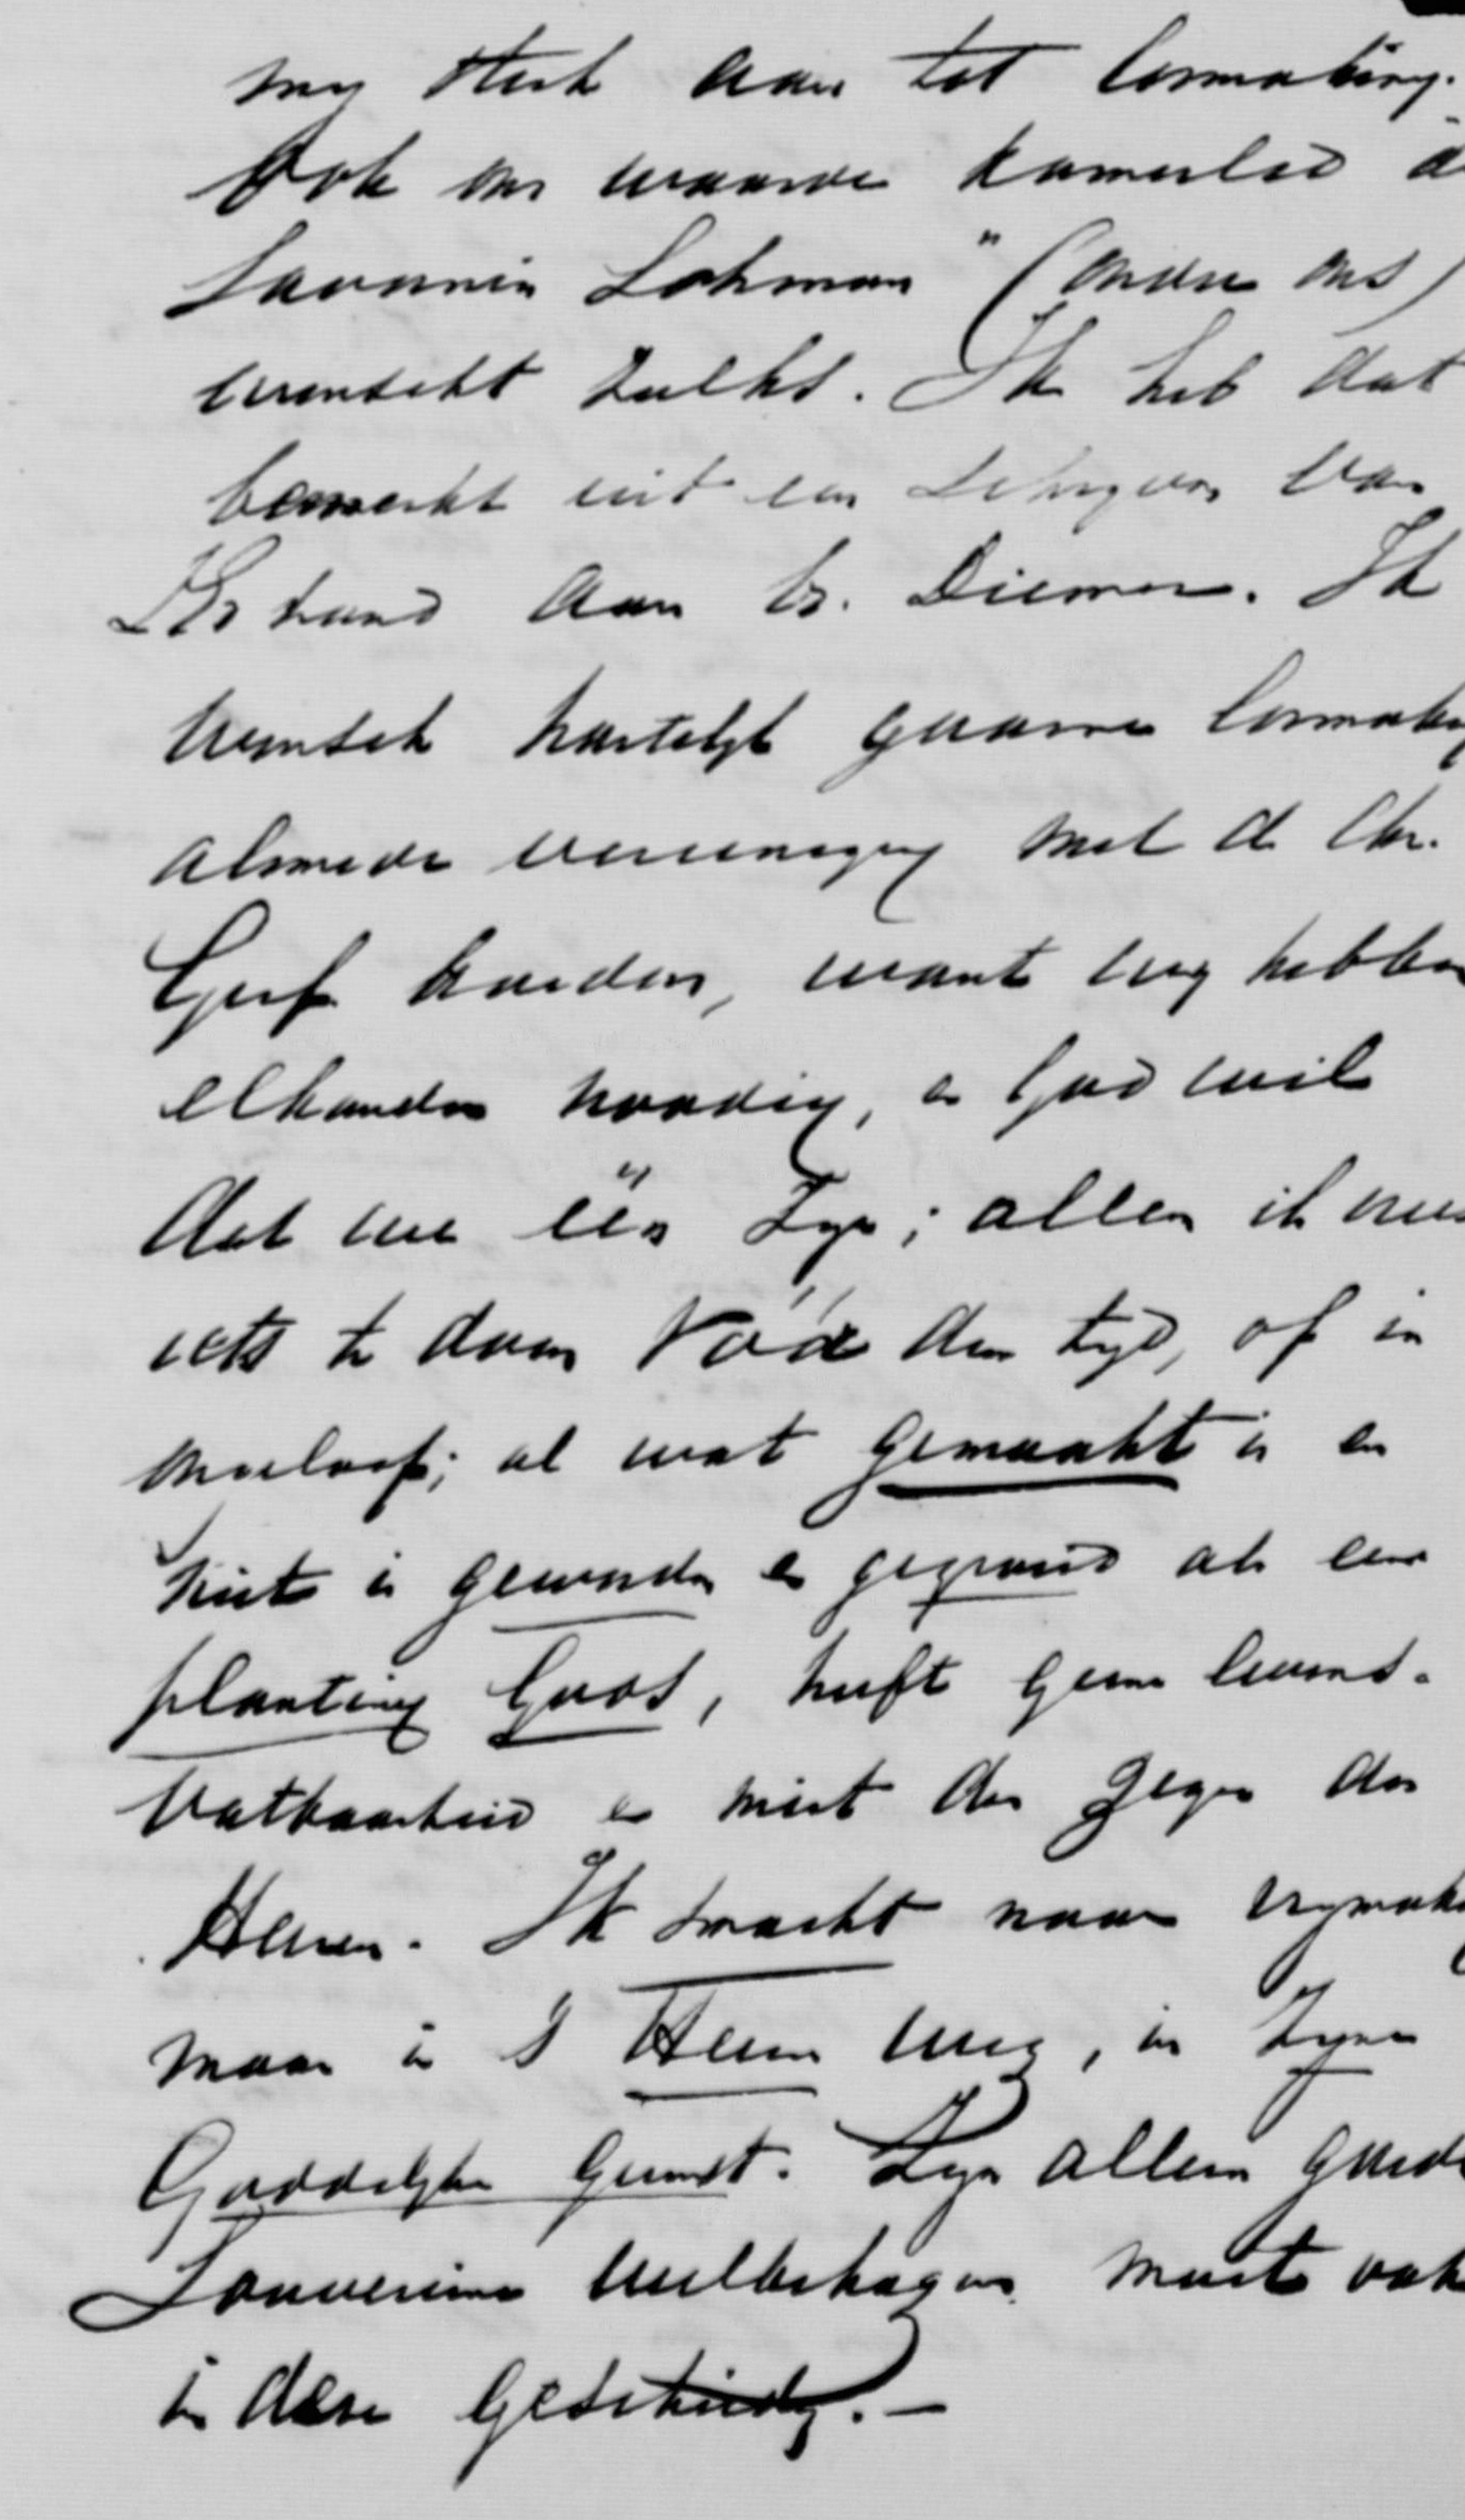 my sterk aan tot losmaking.
Ook ons waarde Kamerlid d
Savornin Lohman" (onder ons)
wenscht zulks. Ik heb dat
bemerkt uit een schrijven van
ZEd hand aan br. Diemer. Ik
wensch hartelijk gaarne losmaking
alsmede vereeniging met de Chr.
Geref broeders, want wij hebben
elkander noodig, en God wil
dat we één zijn; allen ik vrees
iets te doen vóór den tijd, of in
ongeloof; al wat gemaakt is en
niet is geworden en gegroeid als eene
planting Gods, heeft geene levens-
vatbaarheid en mist den zegen des
Heeren. Ik smacht naar vrymaking
maar in 's Heeren weg, in Zyne
Goddelyke gunst. Zyn alleen goede
Souvereine welbehagen moet ook
in deze geschieden. -